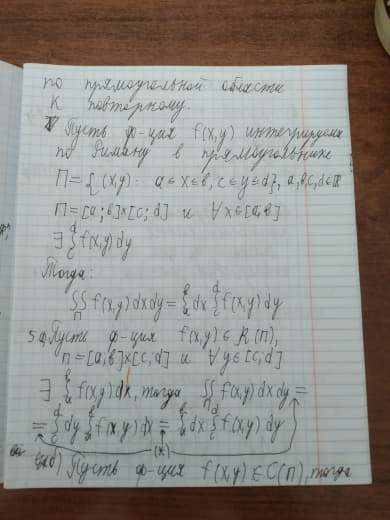 по прямоугольной области
к повторному.
Пусть ф-ция f(x,y) интегрируема
по Риману в прямоугольнике
П={(x,y): a≤x≤b, c≤y≤d}, a,b,c,d∈ℝ
П=[a;b]×[c;d] и ∀x∈[a,b]
∃ ∫_c^d f(x,y)dy
Тогда:
∬_П f(x,y)dxdy=∫_a^b dx ∫_c^d f(x,y)dy
Пусть ф-ция f(x,y)∈R(П),
П=[a;b]×[c,d] и ∀y∈[c;d]
∃ ∫_a^b f(x,y)dx, тогда ∬_П f(x,y)dxdy=
=∫_c^d dy ∫_a^b f(x,y)dx=∫_a^b dx ∫_c^d f(x,y)dy
(*)
Пусть ф-ция f(x,y)∈C(П), тогда